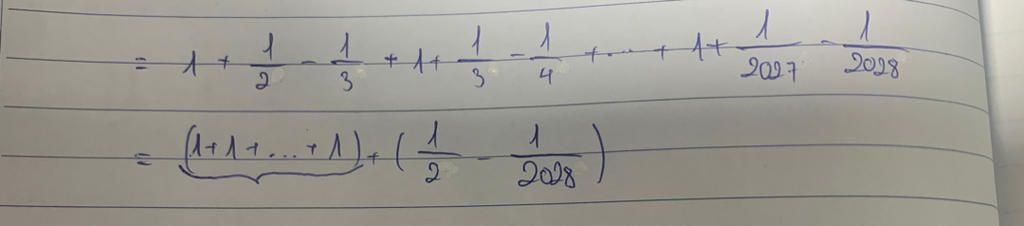 = 1 + 1/2 - 1/3 + 1 + 1/3 - 1/4 + ... + 1 + 1/2027 - 1/2028
= (1+1+...+1) + (1/2 - 1/2028)